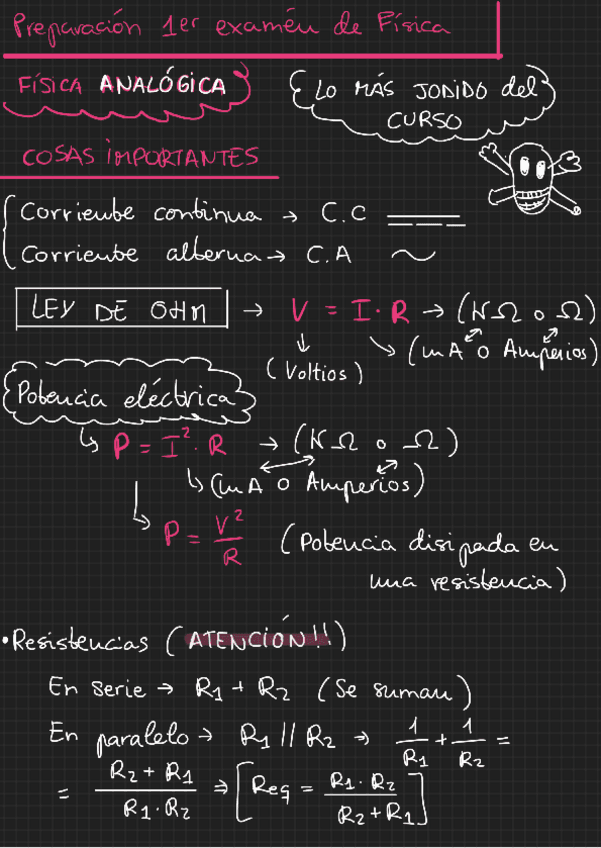 Preparación 1er examén de Física
FÍSICA ANALÓGICA
LO MÁS JODIDO del
CURSO
COSAS IMPORTANTES
Corriente continua → C.C
Corriente alterna → C.A
LEY DE OHM → V = I · R → (KΩ o Ω)
(Voltios) (mA o Amperios)
Potencia eléctrica
P = I² · R → (KΩ o Ω)
(mA o Amperios)
P = V²/R (Potencia disipada en
una resistencia)
• Resistencias (ATENCIÓN!!)
En serie → R1 + R2 (Se suman)
En paralelo → R1 // R2 → 1/R1 + 1/R2 =
= (R2 + R1)/(R1 · R2) ⇒ [Req = (R1 · R2)/(R2 + R1)]